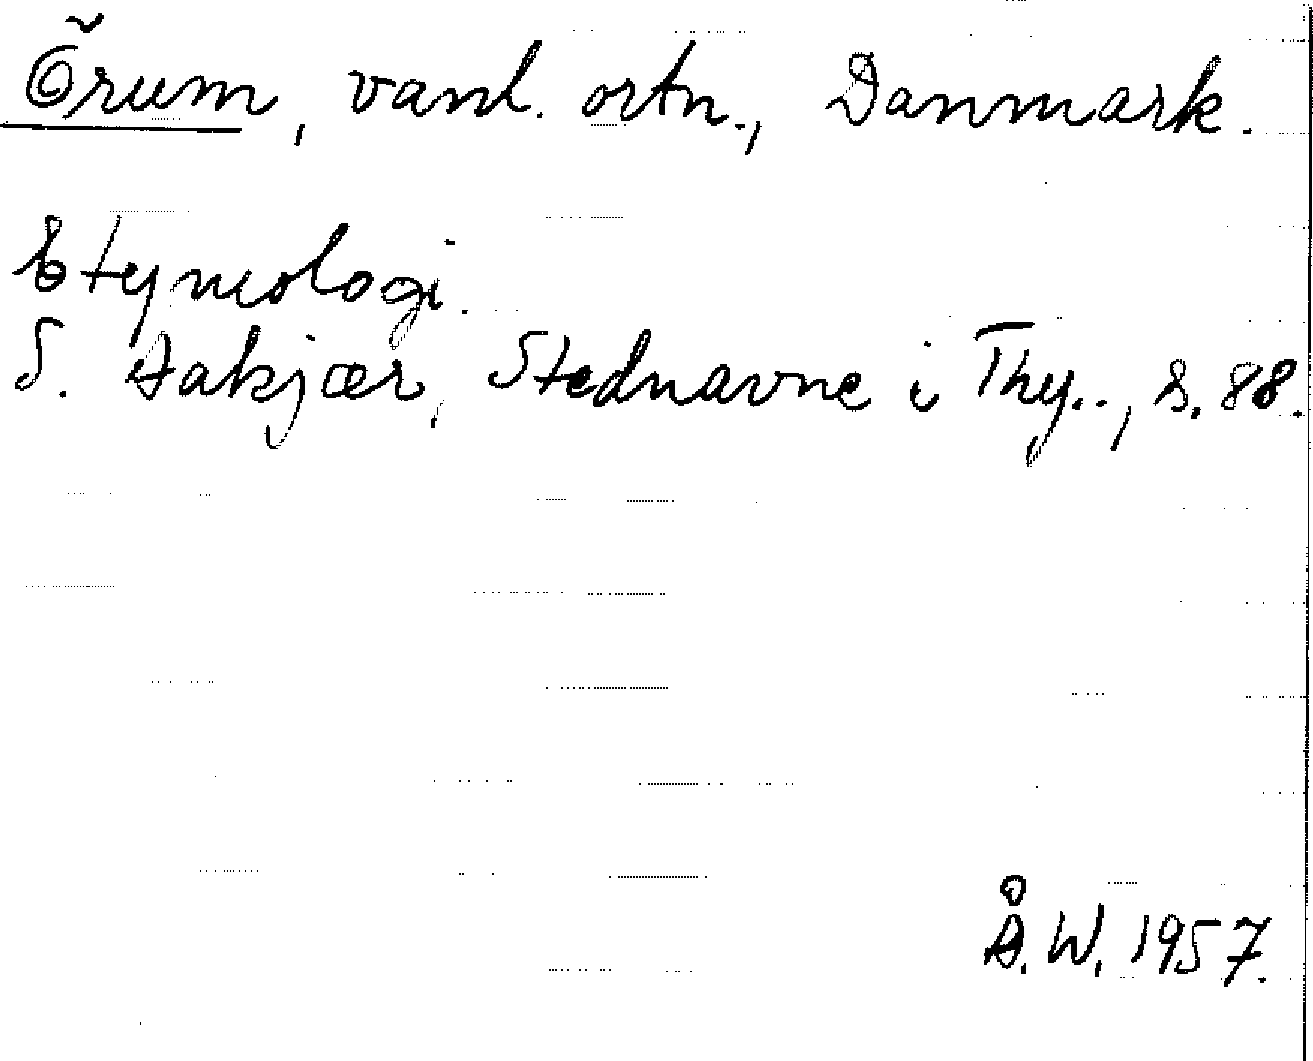 Örum, vanl. ortn., Danmark.
Etymologi.
S. Aakjær, Stednavne i Thy.., s. 88.
Å. W. 1957.